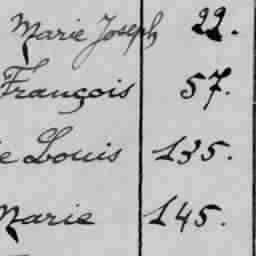 Marie Joseph 22.
François 57.
e Louis 135.
Marie 145.